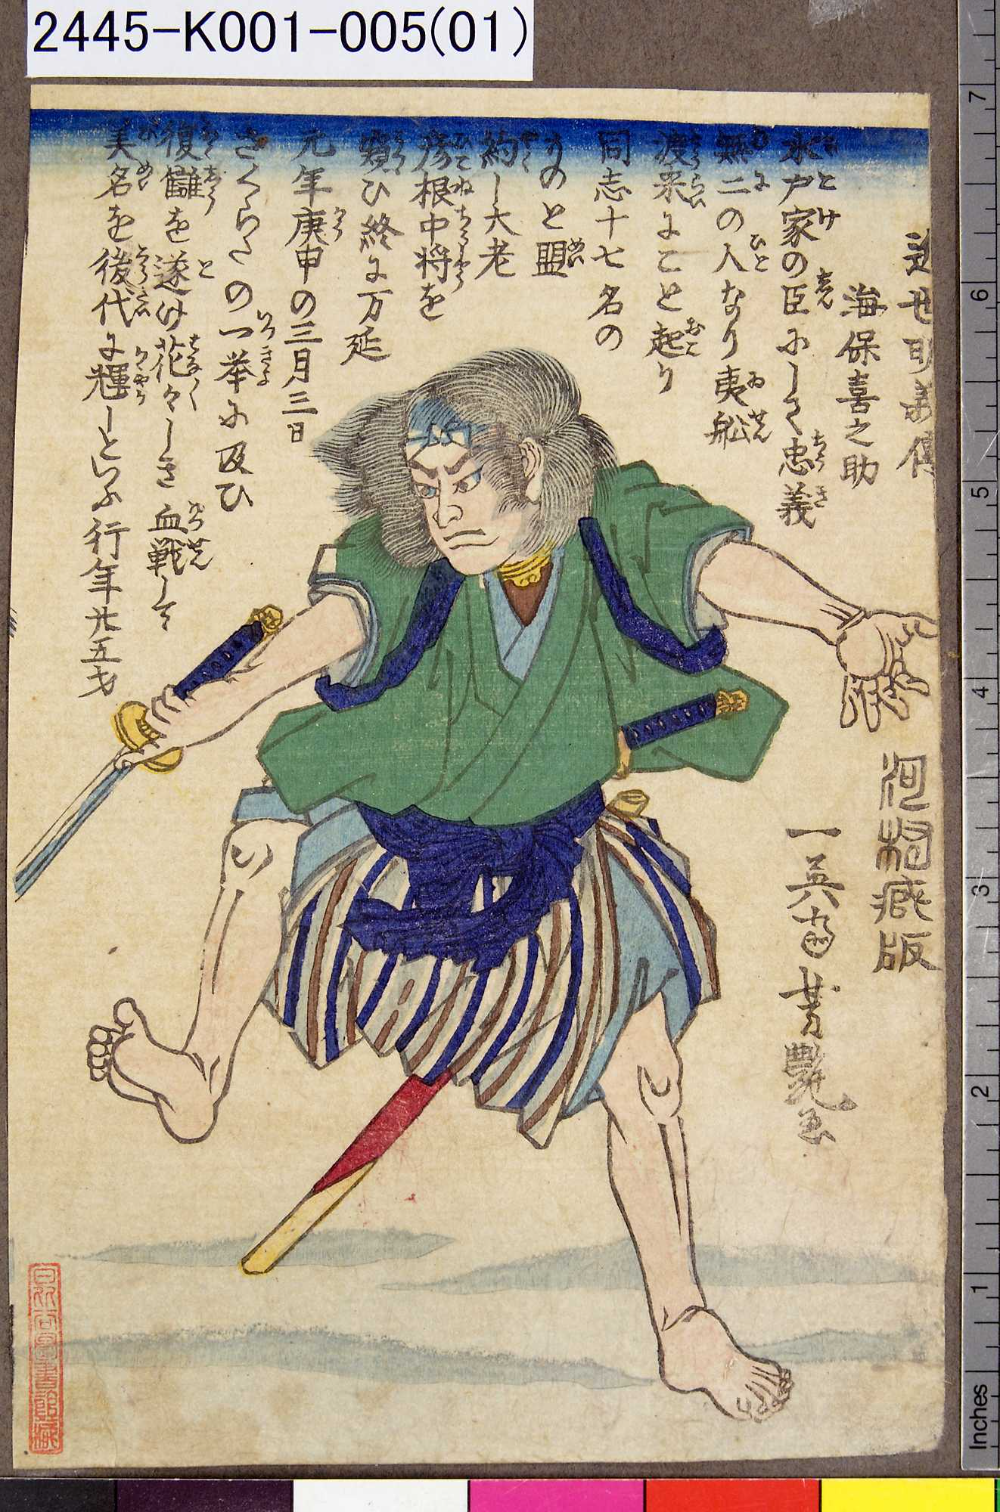 2445-K001-005(01)
近世明義傳
海保喜之助
水戸家の臣にして忠義
無二の人なり夷舩
渡来よこと起り
同志十七名の
ものと盟
約し大老
彦根中将を
窺ひ終に万延
元年庚申の三月三日
さくらだの一挙に及ひ
復讎を遂け花々しき血戦して
美名を後代に輝しといふ行年廿五才
版
一英斎芳艶画
日比谷図書館蔵
7
6
5
4
3
2
1
Inches